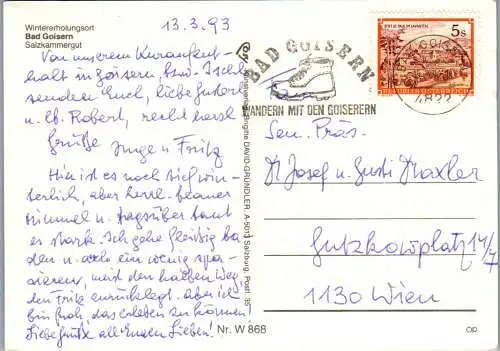 Wintererholungsort
Bad Goisern
Salzkammergut
13.3.93
Von unserem Kuraufent-
halt in Goisern, bzw. Ischl
senden Euch, liebe Gusti
u. lb. Robert, recht herzl.
Grüße Inge u. Fritz
Hier ist es noch richtig win-
terlich, aber herrl. blauer
Himmel u. tagsüber taut
es stark. Ich gehe fleißig ba-
den u. auch ein wenig spa-
zieren, meist den halben Weg,
den Fritz zurücklegt. Aber ich
bin froh, das erleben zu können
Liebe Grüße all Euren Lieben!
Kunstverlag Brigitte DAVID GRÜNDLER, A-5013 Salzburg, Postf. 35
BAD GOISERN
WANDERN MIT DEN GOISERERN
4822
5s
REPUBLIK ÖSTERREICH
Sen. Präs.
Dr Josef u. Gusti
Gutzkowplatz 14/7
1130 Wien
Nr. W 868